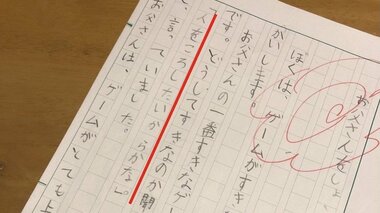 ぼくは、お父さんをしょ
かいします。
お父さんは、ゲームがすき
です。お父さんの一番すきなゲー
です。どうしてすきなのか聞
「人をころしたいからかな。」
と、言っていました。
お父さんは、ゲームがとても上